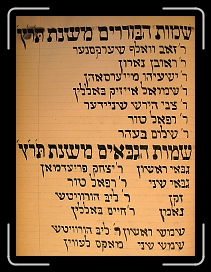 שמות הבוררים משנת תר״ץ
ר׳ זאב וואלף שיערפסנער
ר׳ ראובן נארון
ר׳ ישעיהו מיירסאהן
ר׳ שמואל אייזיק באללין
ר׳ צבי הירש שניידער
ר׳ רפאל טור
ר׳ שלום בעהר
שמות הגבאים משנת תר״ץ
גבאי ראשון ר׳ יצחק פריעדמאן
גבאי שני ר׳ רפאל טור
זקן ר׳ ליב הורוויטשי
נאמן ר׳ חיים באללין
שמשי ראשון ר׳ ליב הורוויטשי
שמשי שני מאקס לעווין